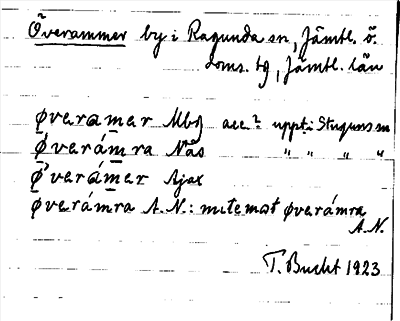 Överammer by i Ragunda sn, Jämtl. ö.
doms. tg, Jämtl. län
øveramer Mbg acc.² uppt. i Stuguns sn
øverámra Näs " " " "
øverámer Ajax
øverámra A.N.: mıtemøt øverámra
A.N.
T. Bucht 1923